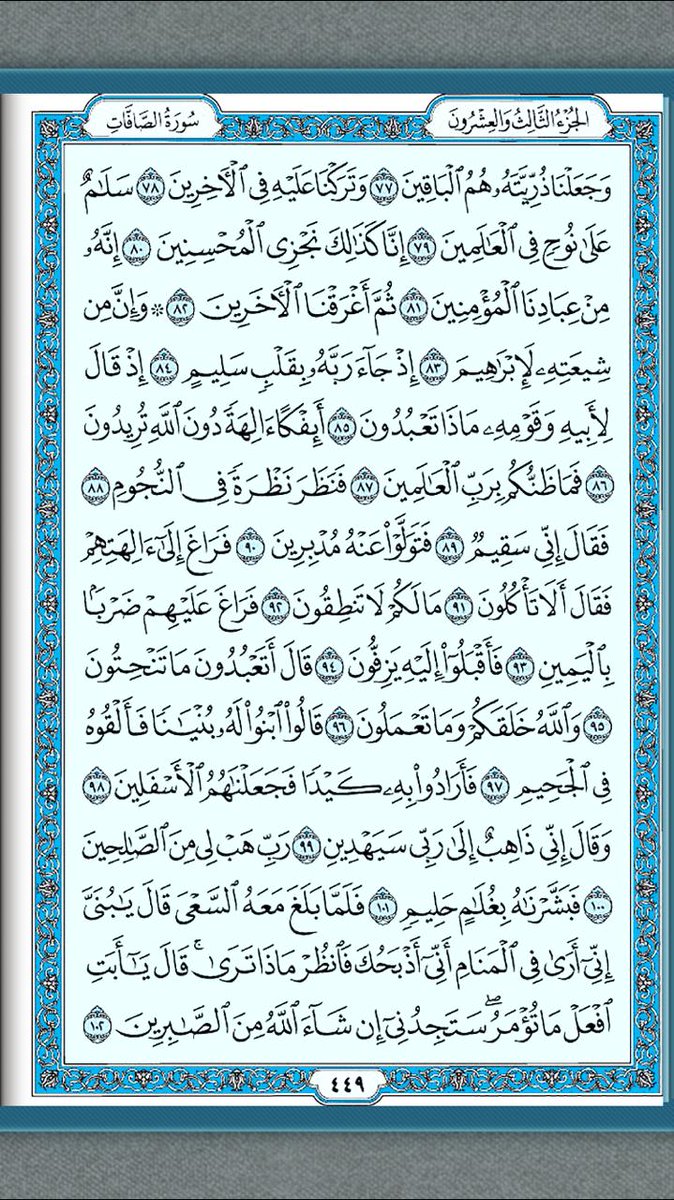 الجُزْءُ الثَّالِثُ وَالعِشْرُونَ
سُورَةُ الصَّافَّاتِ
وَجَعَلْنَا ذُرِّيَّتَهُۥ هُمُ ٱلْبَاقِينَ ٧٧ وَتَرَكْنَا عَلَيْهِ فِي ٱلْأٓخِرِينَ ٧٨ سَلَٰمٌ
عَلَىٰ نُوحٍ فِي ٱلْعَٰلَمِينَ ٧٩ إِنَّا كَذَٰلِكَ نَجْزِي ٱلْمُحْسِنِينَ ٨٠ إِنَّهُۥ
مِنْ عِبَادِنَا ٱلْمُؤْمِنِينَ ٨١ ثُمَّ أَغْرَقْنَا ٱلْأٓخَرِينَ ٨٢ ۞ وَإِنَّ مِن
شِيعَتِهِۦ لَإِبْرَٰهِيمَ ٨٣ إِذْ جَآءَ رَبَّهُۥ بِقَلْبٍ سَلِيمٍ ٨٤ إِذْ قَالَ
لِأَبِيهِ وَقَوْمِهِۦ مَاذَا تَعْبُدُونَ ٨٥ أَئِفْكًا ءَالِهَةً دُونَ ٱللَّهِ تُرِيدُونَ
٨٦ فَمَا ظَنُّكُم بِرَبِّ ٱلْعَٰلَمِينَ ٨٧ فَنَظَرَ نَظْرَةً فِي ٱلنُّجُومِ ٨٨
فَقَالَ إِنِّي سَقِيمٌ ٨٩ فَتَوَلَّوْا۟ عَنْهُ مُدْبِرِينَ ٩٠ فَرَاغَ إِلَىٰٓ ءَالِهَتِهِمْ
فَقَالَ أَلَا تَأْكُلُونَ ٩١ مَا لَكُمْ لَا تَنطِقُونَ ٩٢ فَرَاغَ عَلَيْهِمْ ضَرْبًۢا
بِٱلْيَمِينِ ٩٣ فَأَقْبَلُوٓا۟ إِلَيْهِ يَزِفُّونَ ٩٤ قَالَ أَتَعْبُدُونَ مَا تَنْحِتُونَ
٩٥ وَٱللَّهُ خَلَقَكُمْ وَمَا تَعْمَلُونَ ٩٦ قَالُوا۟ ٱبْنُوا۟ لَهُۥ بُنْيَٰنًا فَأَلْقُوهُ
فِي ٱلْجَحِيمِ ٩٧ فَأَرَادُوا۟ بِهِۦ كَيْدًا فَجَعَلْنَٰهُمُ ٱلْأَسْفَلِينَ ٩٨
وَقَالَ إِنِّي ذَاهِبٌ إِلَىٰ رَبِّي سَيَهْدِينِ ٩٩ رَبِّ هَبْ لِي مِنَ ٱلصَّٰلِحِينَ
١٠٠ فَبَشَّرْنَٰهُ بِغُلَٰمٍ حَلِيمٍ ١٠١ فَلَمَّا بَلَغَ مَعَهُ ٱلسَّعْيَ قَالَ يَٰبُنَيَّ
إِنِّيٓ أَرَىٰ فِي ٱلْمَنَامِ أَنِّيٓ أَذْبَحُكَ فَٱنظُرْ مَاذَا تَرَىٰۚ قَالَ يَٰٓأَبَتِ
ٱفْعَلْ مَا تُؤْمَرُۖ سَتَجِدُنِيٓ إِن شَآءَ ٱللَّهُ مِنَ ٱلصَّٰبِرِينَ ١٠٢
٤٤٩